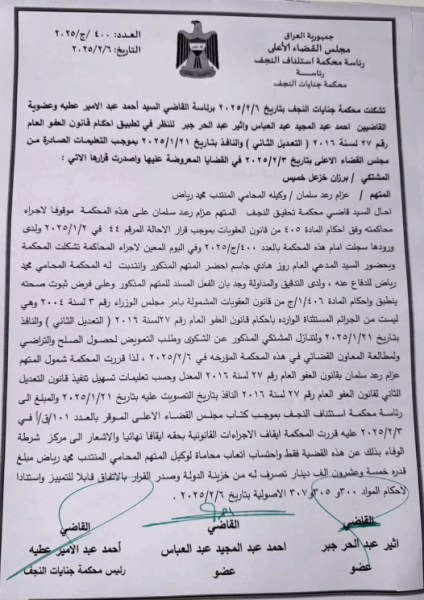 جمهورية العراق
مجلس القضاء الأعلى
رئاسة محكمة استئناف النجف
رئاسة
محكمة جنايات النجف
العدد: ٤٠٠ /ج/٢٠٢٥
التاريخ: ٢٠٢٥/٢/٦
تشكلت محكمة جنايات النجف بتاريخ ٢٠٢٥/٢/٦ برئاسة القاضي السيد أحمد عبد الامير عطيه وعضوية
القاضيين احمد عبد المجيد عبد العباس واثير عبد الحر جبر للنظر في تطبيق احكام قانون العفو العام
رقم ٢٧ لسنة ٢٠١٦ ( التعديل الثاني ) والنافذ بتاريخ ٢٠٢٥/١/٢١ بموجب التعليمات الصادرة من
مجلس القضاء الاعلى بتاريخ ٢٠٢٥/٢/٣ في القضايا المعروضة عليها واصدرت قرارها الاتي :
المشتكي / برزان خزعل خميس
المتهم / عزام رعد سلمان / وكيله المحامي المنتدب محمد رياض
احال السيد قاضي محكمة تحقيق النجف المتهم عزام رعد سلمان على هذه المحكمة موقوفا لاجراء
محاكمته وفق احكام المادة ٤٠٥ من قانون العقوبات بموجب قرار الاحالة المرقم ٤٤ في ٢٠٢٥/١/٢ ولدى
ورودها سجلت امام هذه المحكمة بالعدد ٤٠٠/ج/٢٠٢٥ وفي اليوم المعين لاجراء المحاكمة تشكلت المحكمة
وبحضور السيد المدعي العام روز هادي جاسم احضر المتهم المذكور وانتدبت له المحكمة المحامي محمد
رياض للدفاع عنه ، ولدى التدقيق والمداولة وجد بان الفعل المسند للمتهم المذكور وعلى فرض ثبوت صحته
ينطبق واحكام المادة ١/٤٠٦/ج من قانون العقوبات المشمولة بامر مجلس الوزراء رقم ٣ لسنة ٢٠٠٤ وهي
ليست من الجرائم المستثناة الوارده باحكام قانون العفو العام رقم ٢٧لسنة ٢٠١٦ ( التعديل الثاني ) والنافذ
بتاريخ ٢٠٢٥/١/٢١ ولتنازل المشتكي المذكور عن الشكوى وطلب التعويض لحصول الصلح والتراضي
ولمطالعة المعاون القضائي في هذه المحكمة المؤرخه في ٢٠٢٥/٢/٦ ، لذا قررت المحكمة شمول المتهم
عزام رعد سلمان بقانون العفو العام رقم ٢٧ لسنة ٢٠١٦ المعدل وحسب تعليمات تسهيل تنفيذ قانون التعديل
الثاني لقانون العفو العام رقم ٢٧ لسنة ٢٠١٦ النافذ بتاريخ التصويت عليه بتاريخ ٢٠٢٥/١/٢١ والمبلغ الى
رئاسة محكمة استئناف النجف بموجب كتاب مجلس القضاء الاعلى الموقر بالعدد ١٠١/ق/أ في
٢٠٢٥/٢/٣ عليه قررت المحكمة ايقاف الاجراءات القانونية بحقه ايقافا نهائيا والاشعار الى مركز شرطة
الوفاء بذلك عن هذه القضية فقط واحتساب اتعاب محاماة لوكيل المتهم المحامي المنتدب محمد رياض مبلغ
قدره خمسة وعشرون الف دينار تصرف له من خزينة الدولة وصدر القرار بالاتفاق قابلا للتمييز واستنادا
لاحكام المواد ٣٠٠ و ٣٠٥ و ٣٠٧ الاصولية بتاريخ ٢٠٢٥/٢/٦ .
القاضي القاضي القاضي
اثير عبد الحر جبر احمد عبد المجيد عبد العباس أحمد عبد الامير عطيه
عضو عضو رئيس محكمة جنايات النجف